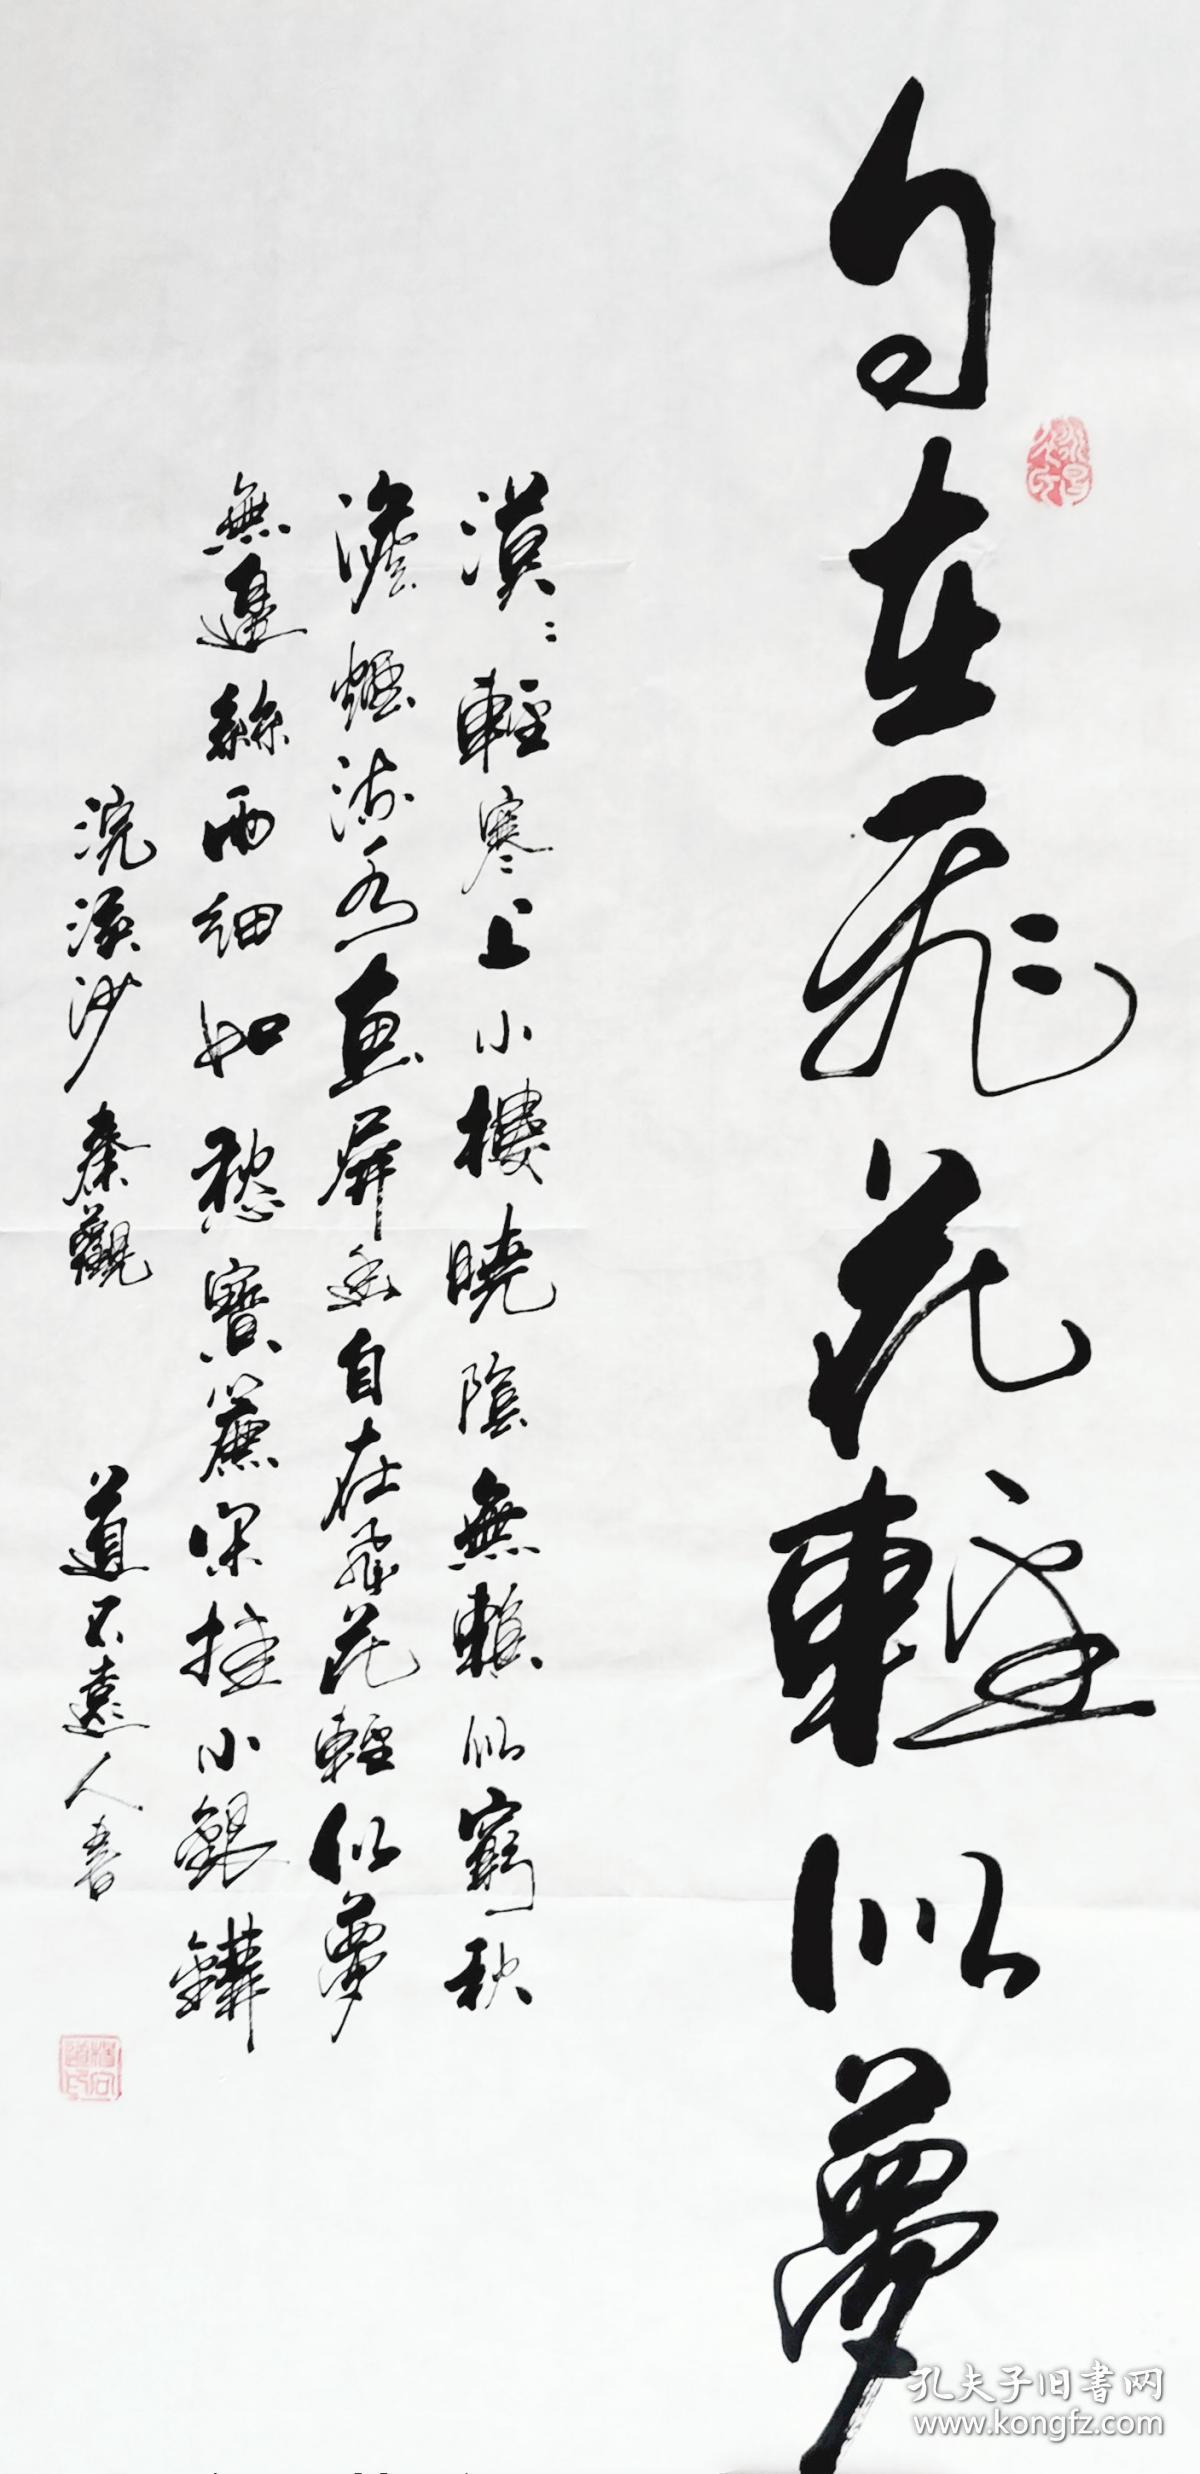 自在飛花輕似夢
漠〻輕寒上小樓曉陰無賴似窮秋
澹煙流水畫屏幽自在飛花輕似夢
無邊絲雨細如愁寶簾閑挂小銀鉤
浣溪沙 秦觀 道不遠人書
孔夫子旧書网
www.kongfz.com